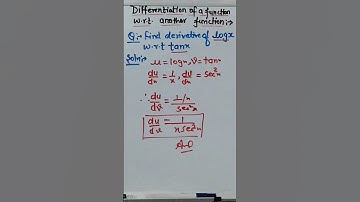 Differentiation of a function
w.r.t. another function:-
Q:- find derivative of logx
w.r.t tanx
Soln:- u = logx, v = tanx
du/dx = 1/x, dv/dx = sec²x
∴ du/dv = 1/x / sec²x
du/dv = 1 / x sec²x
Ans